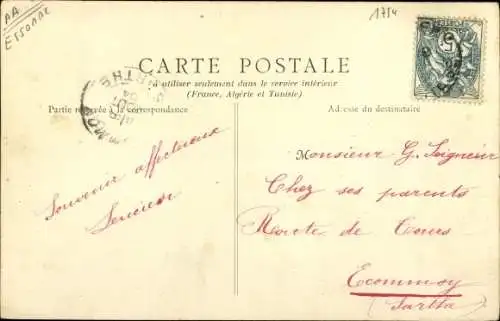 AA
ESSONNE
1754
CARTE POSTALE
à utiliser seulement dans le service intérieur
(France, Algérie et Tunisie)
Partie réservée à la correspondance
Adresse du destinataire
SARTHE
Souvenir affectueux
Lucien
Monsieur G. Seigneur
Chez ses parents
Route de Tours
Ecommoy
(Sarthe)